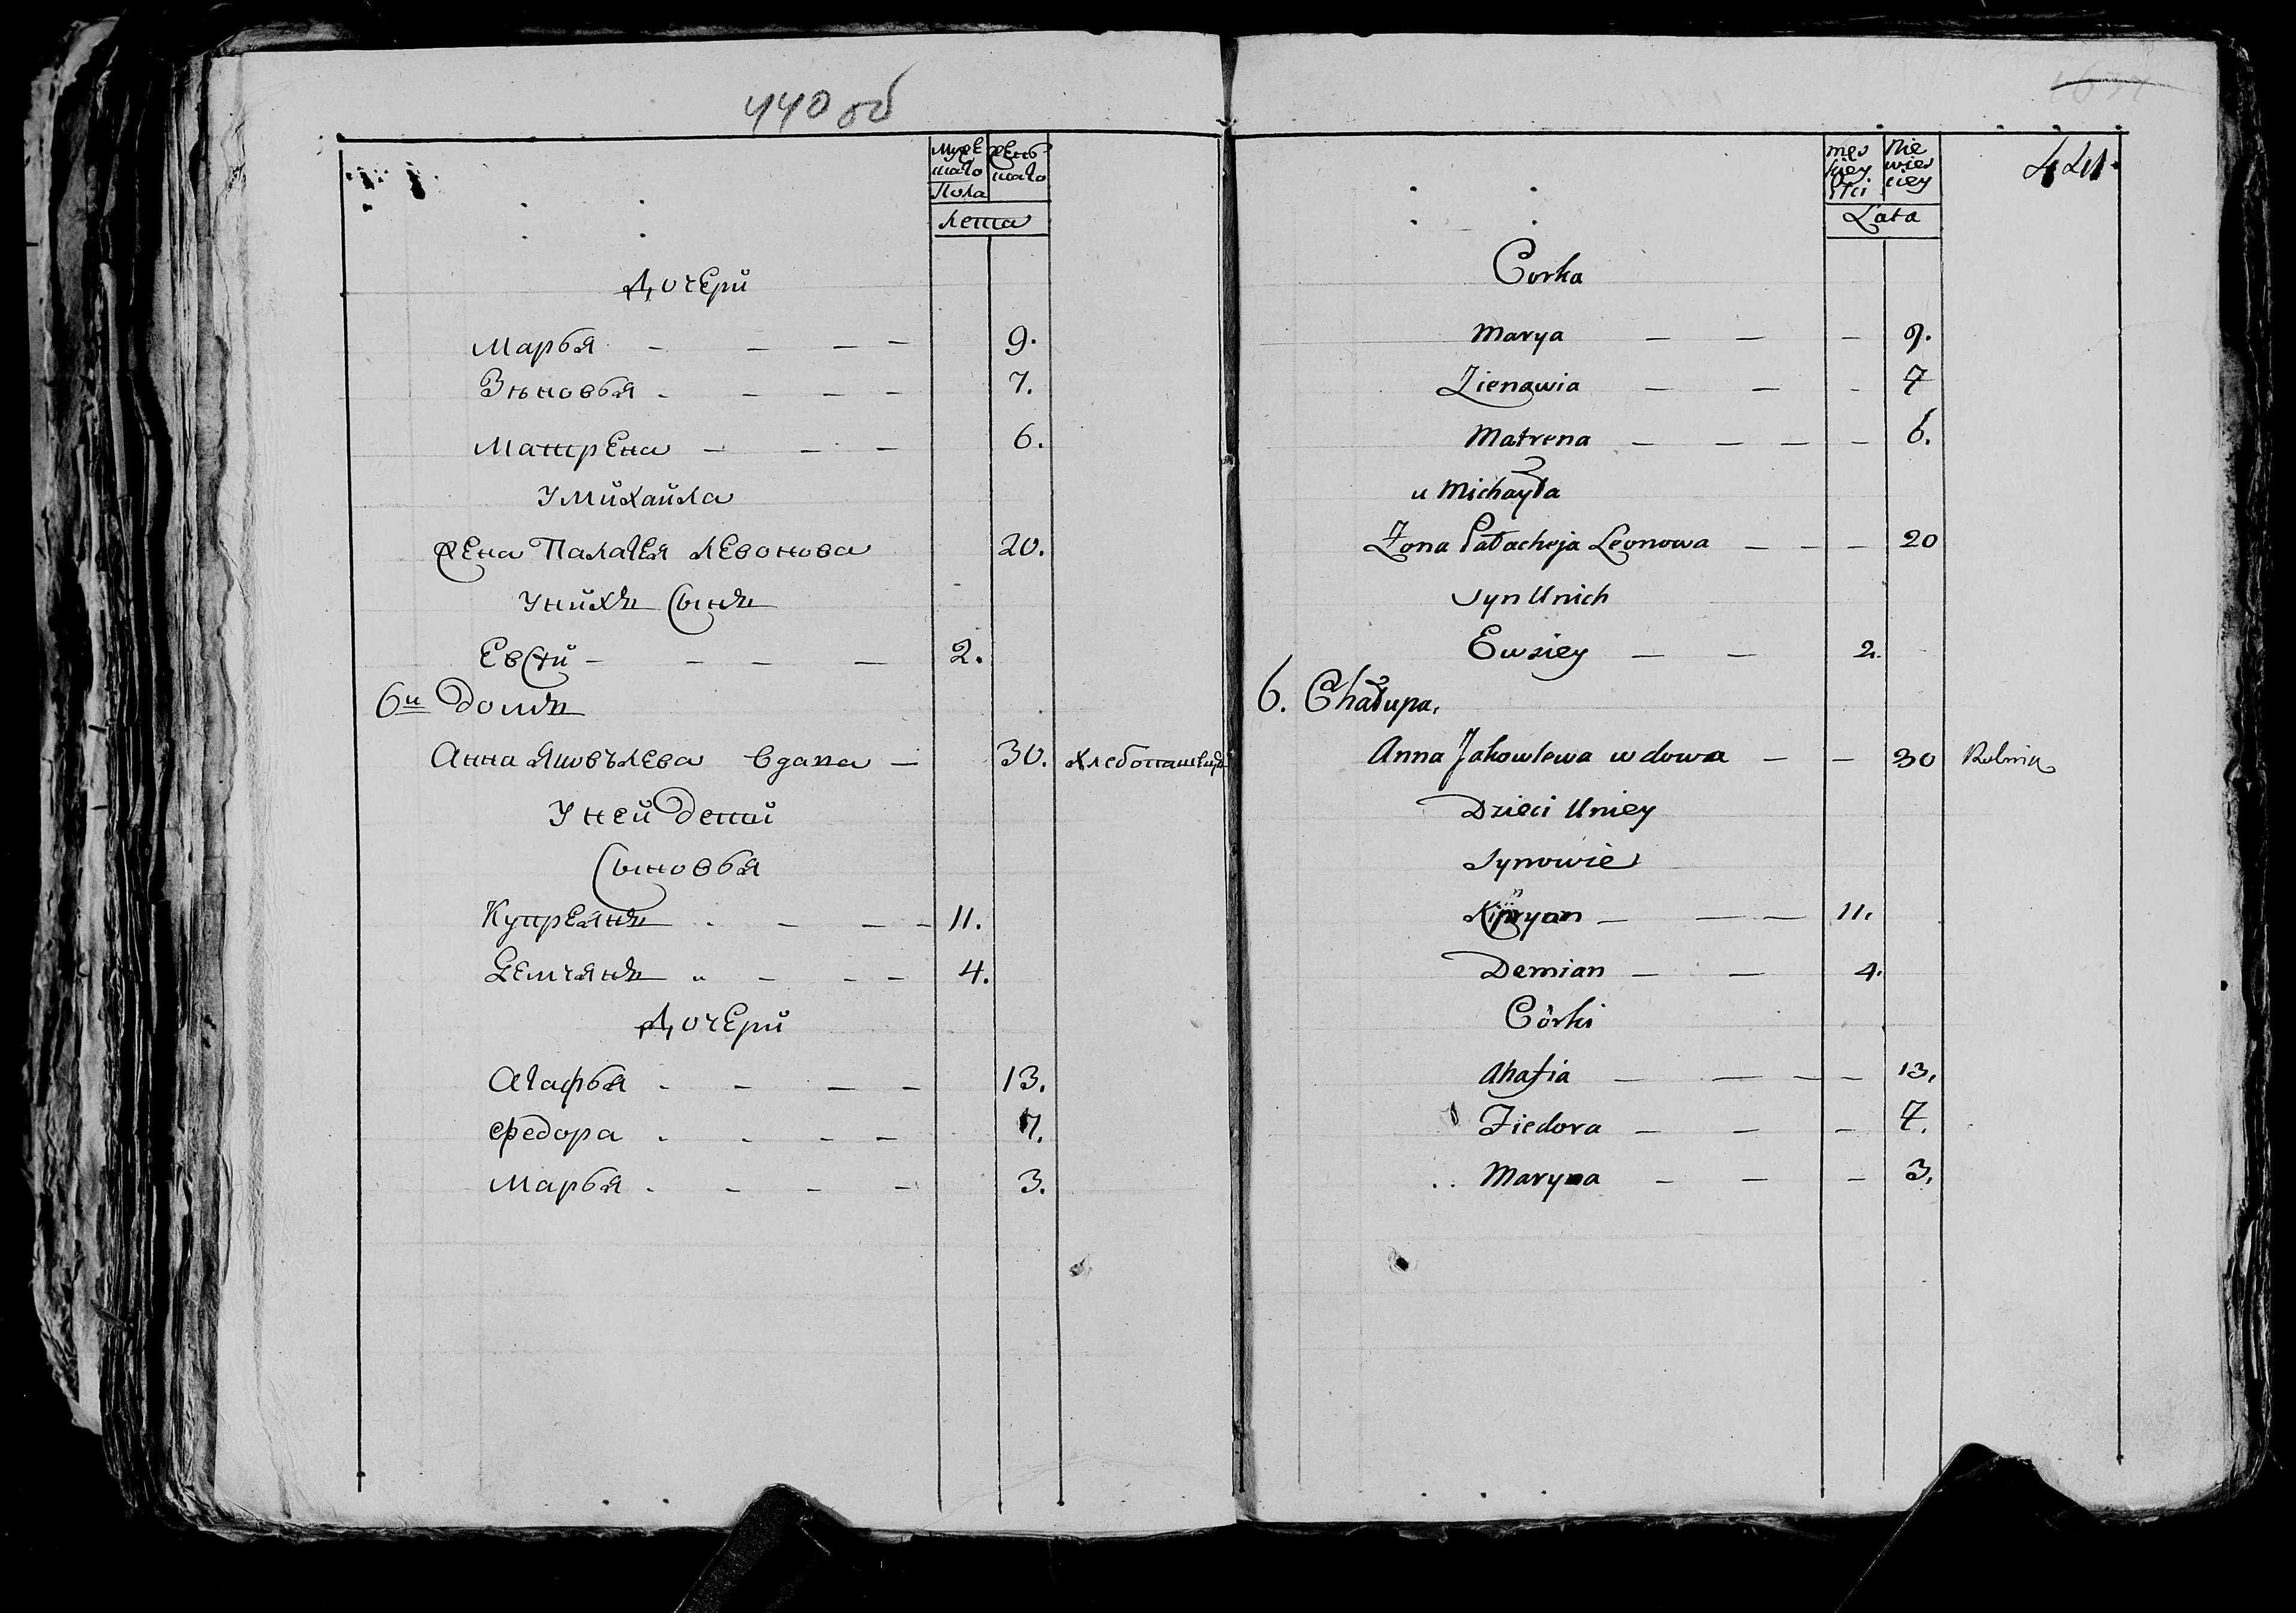 440 об
Мужескаго Женскаго
Пола
лета
Дочери
Марья 9.
Зѣновья 7.
Матрена 6.
У Михайла
жена Палагея Левонова 20.
У нихъ Сынъ
Евсѣй 2.
6й домъ
Анна Яковълева вдава 30. хлебопашец
У ней дети
Сыновья
Купреянъ 11.
Демьянъ 4.
Дочери
Агафья 13.
Федора 7.
Марья 3.
męskiey Płci Niewiesciey
Lata
Corka
Marya 9.
Zienawia 7
Matrena 6.
u Michayła
Żona Pałacheja Leonowa 20
Syn Unich
Ewsiey 2.
6. Chałupa.
Anna Jakowlewa wdowa 30 Rolnik
Dzieci Uniey
Synowie
Kipryan 11.
Demian 4.
Córki
Ahafia 13.
Fiedora 7.
Maryna 3.